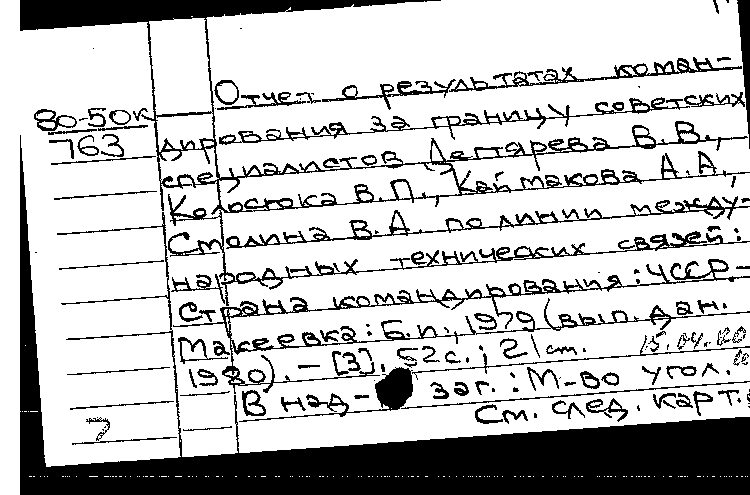 Отчет о результатах коман-
80-50к
763
дирования за границу советских
специалистов Дегтярева В.В.,
Колостюка В.П., Каймакова А.А.,
Столина В.А. по линии между-
народных технических связей:
Страна командирования: ЧССР.-
Макеевка: Б.и., 1979 (вып. дан.
1980). - [3], 52с.; 21 см. 15.04.80
В над- заг.: М-во угол.
См. след. карт.